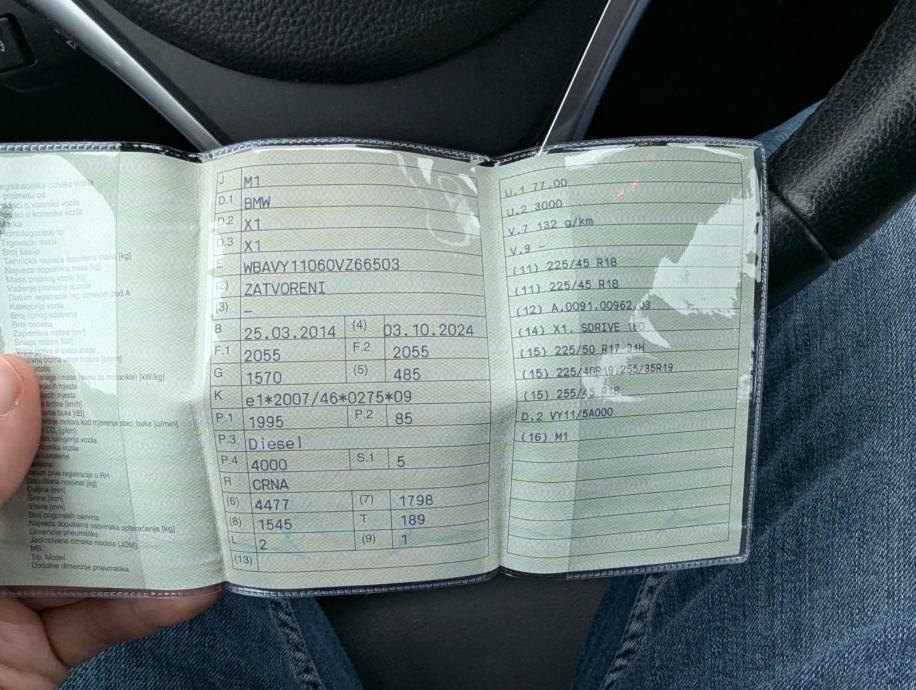 registracijska oznaka vozila
prometu od
Podaci o vlasniku vozila
Podaci o korisniku vozila
Marka
Homologacijski tip
Trgovački naziv
Broj šasije
Tehnička najveća dopuštena masa [kg]
Najveća dopuštena masa [kg]
Masa praznog vozila [kg]
Važenje prometne dozvole
Datum registracije reg. oznakom pod A
Kategorija vozila
Broj tipnog odobrenja
Broj osovina
Zapremina motora [cm³]
Snaga motora [kW]
datum prve registracije u RH
Dopuštena nosivost [kg]
Duljina [mm]
Širina [mm]
Visina [mm]
Broj pogonskih osovina
Najveća dopuštena osovinska opterećenja [kg]
Dimenzije pneumatika
Jedinstvena oznaka modela (JOM)
MB
Tip, Model
Dodatne dimenzije pneumatika
J M1
D.1 BMW
D.2 X1
D.3 X1
E WBAVY11060VZ66503
(2) ZATVORENI
(3) –
B 25.03.2014 (4) 03.10.2024
F.1 2055 F.2 2055
G 1570 (5) 485
K e1*2007/46*0275*09
P.1 1995 P.2 85
P.3 Diesel
P.4 4000 S.1 5
R CRNA
(6) 4477 (7) 1798
(8) 1545 T 189
L 2 (9) 1
(13)
U.1 77.00
U.2 3000
V.7 132 g/km
V.9 –
(11) 225/45 R18
(11) 225/45 R18
(12) A.0091.00962.03
(14) X1, SDRIVE 16D
(15) 225/50 R17 94H
(15) 225/40R19,255/35R19
(15) 255/45 R18
D.2 VY11/5A000
(16) M1